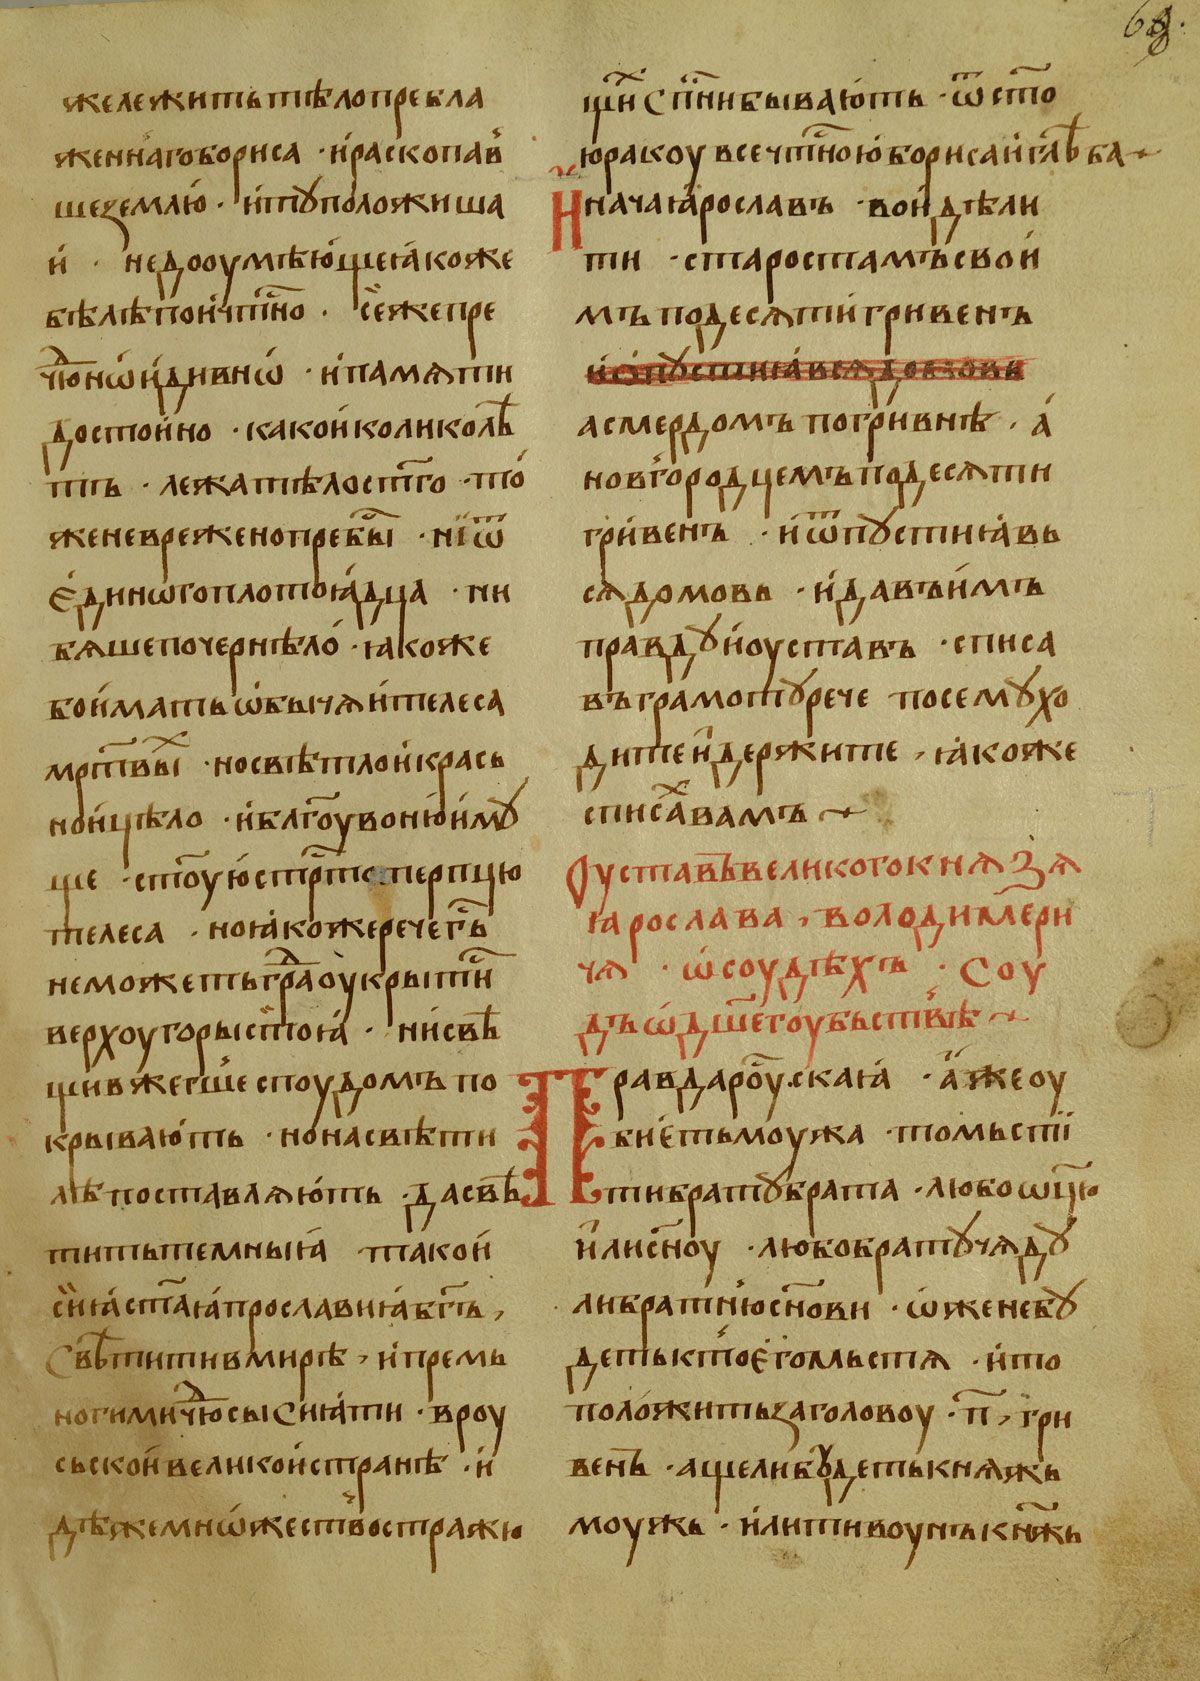 68.
жележитьтѣлопребла
женнагобориса · ираскопав
шеземлю · итꙋположиша
и · недооумѣющеꙗкоже
бѣлѣпоичтⷭ҇но · сежепре
чюⷣнѡидивнѡ · ипамѧти
достойно · какоиколиколѣ
тъ · лежатѣлостг҃о · то
женевреженопребыⷭ҇ · ниѿ
единѡгоплотоꙗдца · ни
бѧшепочернѣло · ꙗкоже
боиматьѡбычѧителеса
мр҃твыⷯ · носвѣтлоикрась
ноицѣло · иблг҃оувонюимꙋ
ще · ст҃оуюстрⷭ҇тотерпцю
телеса · ноꙗкожеречегⷭ҇ь
неможетьграⷣоукрытиⷭ҇
верхоугорыстоꙗ · нисвѣ
щивжегшеспоудомъпо
крывають · нонасвѣти
лѣпоставлѧють · дасвѣ
титьтемныꙗ такои
сиꙗст҃аꙗпрославиꙗбг҃ъ ,
Свѣтитивмирѣ , ипремь
ногимичюⷣсысиꙗти · вроу
сьскойвеликойстранѣ · и
дѣжемнѡжествостражю
щиⷯ сп҃нибывають · ѿсто
юракоувсечтⷭ҇ноюборисаиглѣба
Иначаꙗрославъ · воидѣли
ти · старостамъсвои
мъподесѧтигривенъ
асмердомъпогривнѣ · а
новгородцемъподесѧти
гривенъ · иѿпꙋстиꙗвь
сѧдомовь · идавъимъ
правдꙋиоуставъ · списа
въграмотꙋрече посемꙋхо
дитеидержите , ꙗкоже
списаⷯвамъ
Оуставъвеликогокнѧзѧ
ꙗрослава , володимери
чѧ · ѡсоудѣхъ · Соу
дъѡдш҃егоубьствѣ
Правдароуⷭ҇скаꙗ · ажеоу
биетьмоужа · томьсти
тибратꙋбрата · любоѡц҃ю
илисн҃оу · любобратꙋчѧдꙋ
либратнюсн҃ови · ѡженебꙋ
детьктоегомьстѧ · ито
положитьзаголовоу · п҃ , гри
венъ · ащелибꙋдетькнѧжь
моужь · илитивоунъкнѧжь